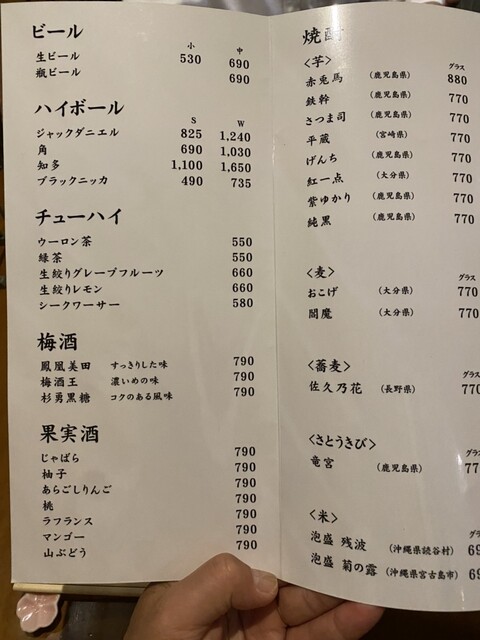 ビール
小 中
生ビール 530 690
瓶ビール 690
ハイボール
S W
ジャックダニエル 825 1,240
角 690 1,030
知多 1,100 1,650
ブラックニッカ 490 735
チューハイ
ウーロン茶 550
緑茶 550
生絞りグレープフルーツ 660
生絞りレモン 660
シークワーサー 580
梅酒
鳳凰美田 すっきりした味 790
梅酒王 濃いめの味 790
杉勇黒糖 コクのある風味 790
果実酒
じゃばら 790
柚子 790
あらごしりんご 790
桃 790
ラフランス 790
マンゴー 790
山ぶどう 790
焼酎
〈芋〉 グラス
赤兎馬 (鹿児島県) 880
鉄幹 (鹿児島県) 770
さつま司 (鹿児島県) 770
平蔵 (宮崎県) 770
げんち (鹿児島県) 770
紅一点 (大分県) 770
紫ゆかり (鹿児島県) 770
純黒 (鹿児島県) 770
〈麦〉 グラス
おこげ (大分県) 770
閻魔 (大分県) 770
〈蕎麦〉 グラス
佐久乃花 (長野県) 770
〈さとうきび〉 グラ
竜宮 (鹿児島県) 770
〈米〉 グラ
泡盛 残波 (沖縄県読谷村) 69
泡盛 菊の露 (沖縄県宮古島市) 69